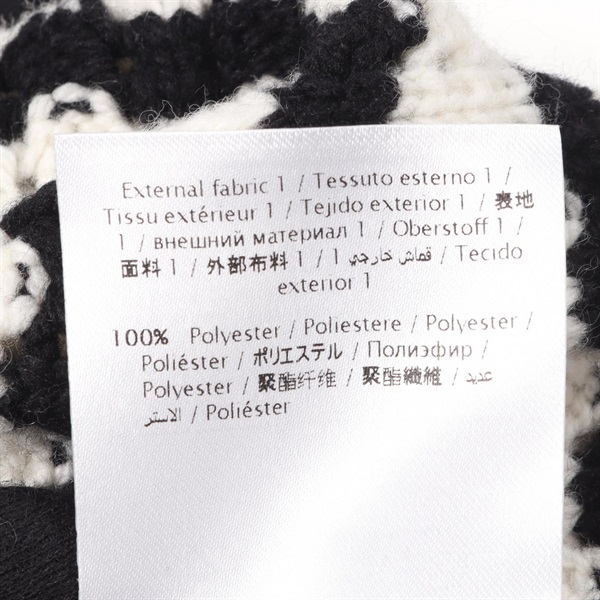 External fabric 1 / Tessuto esterno 1 /
Tissu extérieur 1 / Tejido exterior 1 / 表地
1 / внешний материал 1 / Oberstoff 1 /
面料 1 / 外部布料 1 / 1 قماش خارجي / Tecido
exterior 1
100% Polyester / Poliestere / Polyester /
Poliéster / ポリエステル / Полиэфир /
Polyester / 聚酯纤维 / 聚酯纖維 / عديد
الاستر / Poliéster